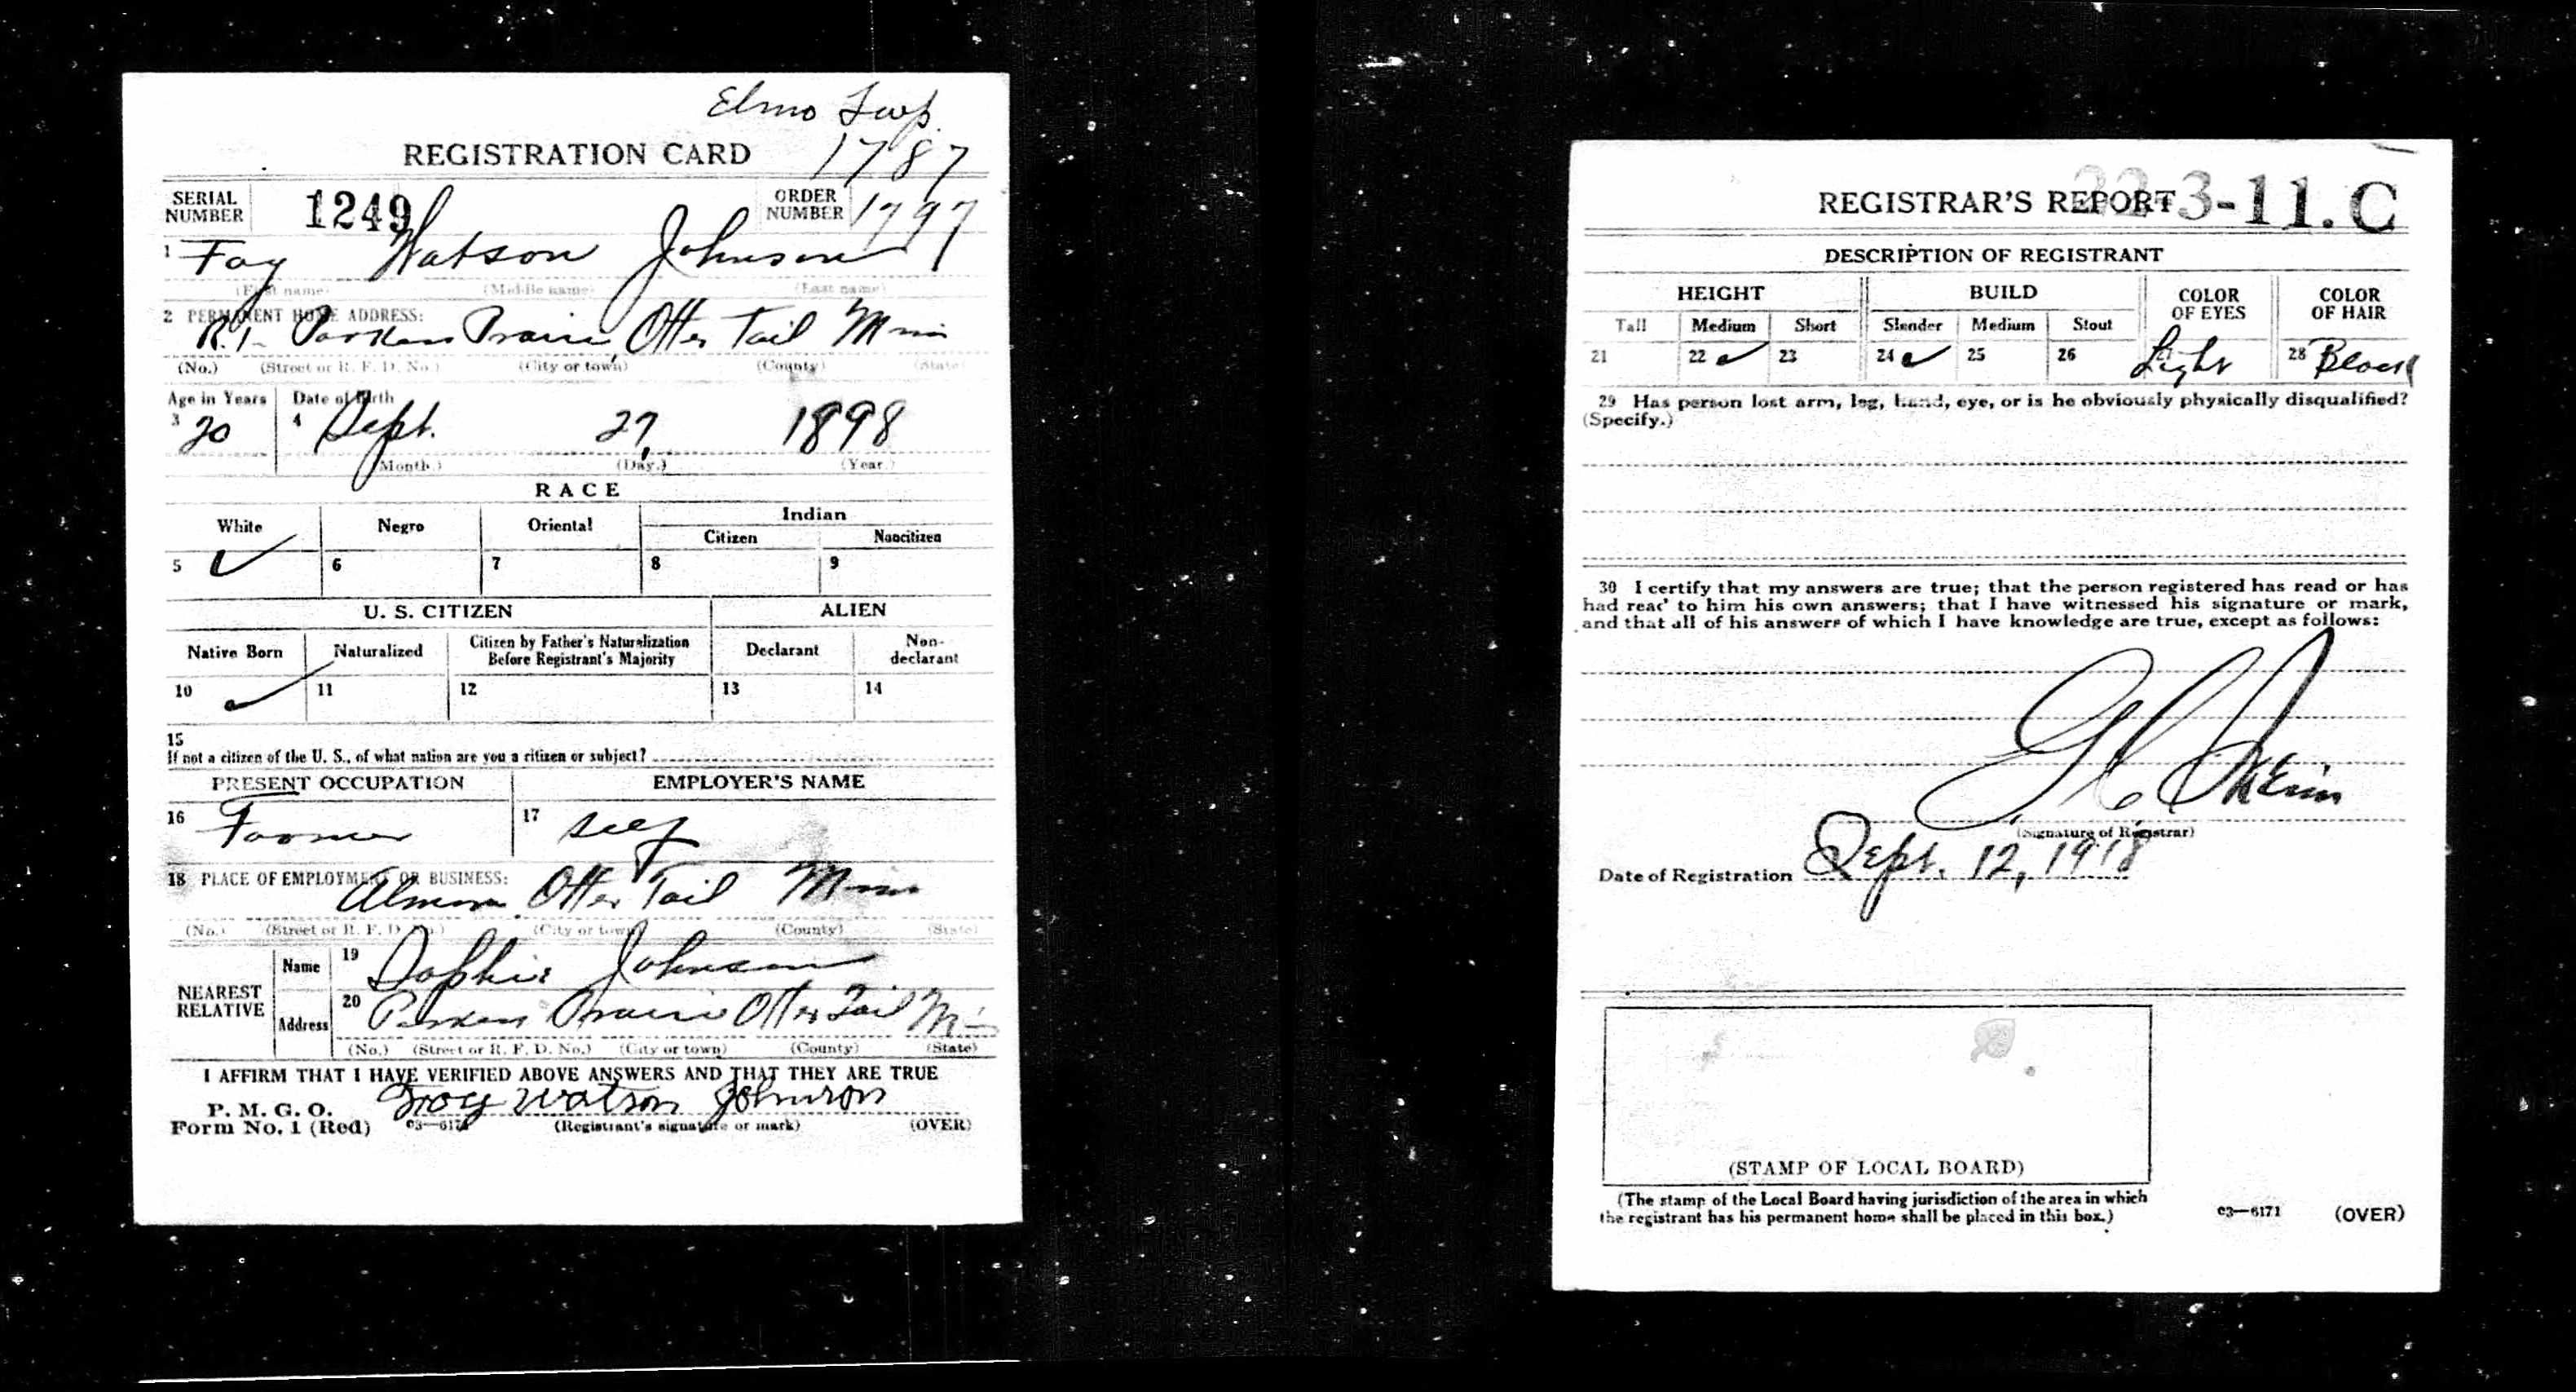 Elmo Twp.
REGISTRATION CARD 1787
SERIAL NUMBER 1249 ORDER NUMBER 1797
1 Foy Watson Johnson
(First name) (Middle name) (Last name)
2 PERMANENT HOME ADDRESS:
R.1 Parkers Prairie, Otter Tail Minn
(No.) (Street or R. F. D. No.) (City or town) (County) (State)
Age in Years Date of Birth
3 20 4 Sept. 27, 1898
(Month.) (Day.) (Year.)
RACE
White Negro Oriental Indian
Citizen Noncitizen
5 ✓ 6 7 8 9
U. S. CITIZEN ALIEN
Native Born Naturalized Citizen by Father's Naturalization Before Registrant's Majority Declarant Non-declarant
10 ✓ 11 12 13 14
15
If not a citizen of the U. S., of what nation are you a citizen or subject?
PRESENT OCCUPATION EMPLOYER'S NAME
16 Farmer 17 self
18 PLACE OF EMPLOYMENT OR BUSINESS:
Otter Tail Minn
(No.) (Street or R. F. D. No.) (City or town) (County) (State)
NEAREST RELATIVE Name 19 Sophie Johnson
Address 20 Parkers Prairie Otter Tail Min
(No.) (Street or R. F. D. No.) (City or town) (County) (State)
I AFFIRM THAT I HAVE VERIFIED ABOVE ANSWERS AND THAT THEY ARE TRUE
P. M. G. O.
Form No. 1 (Red) 03—6171 Watson Johnson
(Registrant's signature or mark) (OVER)
REGISTRAR'S REPORT 22-3-11. C
DESCRIPTION OF REGISTRANT
HEIGHT BUILD COLOR OF EYES COLOR OF HAIR
Tall Medium Short Slender Medium Stout
21 22 ✓ 23 24 ✓ 25 26 27 Light 28 Black
29 Has person lost arm, leg, hand, eye, or is he obviously physically disqualified?
(Specify.)
30 I certify that my answers are true; that the person registered has read or has
had read to him his own answers; that I have witnessed his signature or mark,
and that all of his answers of which I have knowledge are true, except as follows:
(Signature of Registrar)
Date of Registration Sept. 12, 1918
(STAMP OF LOCAL BOARD)
(The stamp of the Local Board having jurisdiction of the area in which
the registrant has his permanent home shall be placed in this box.)
03—6171 (OVER)